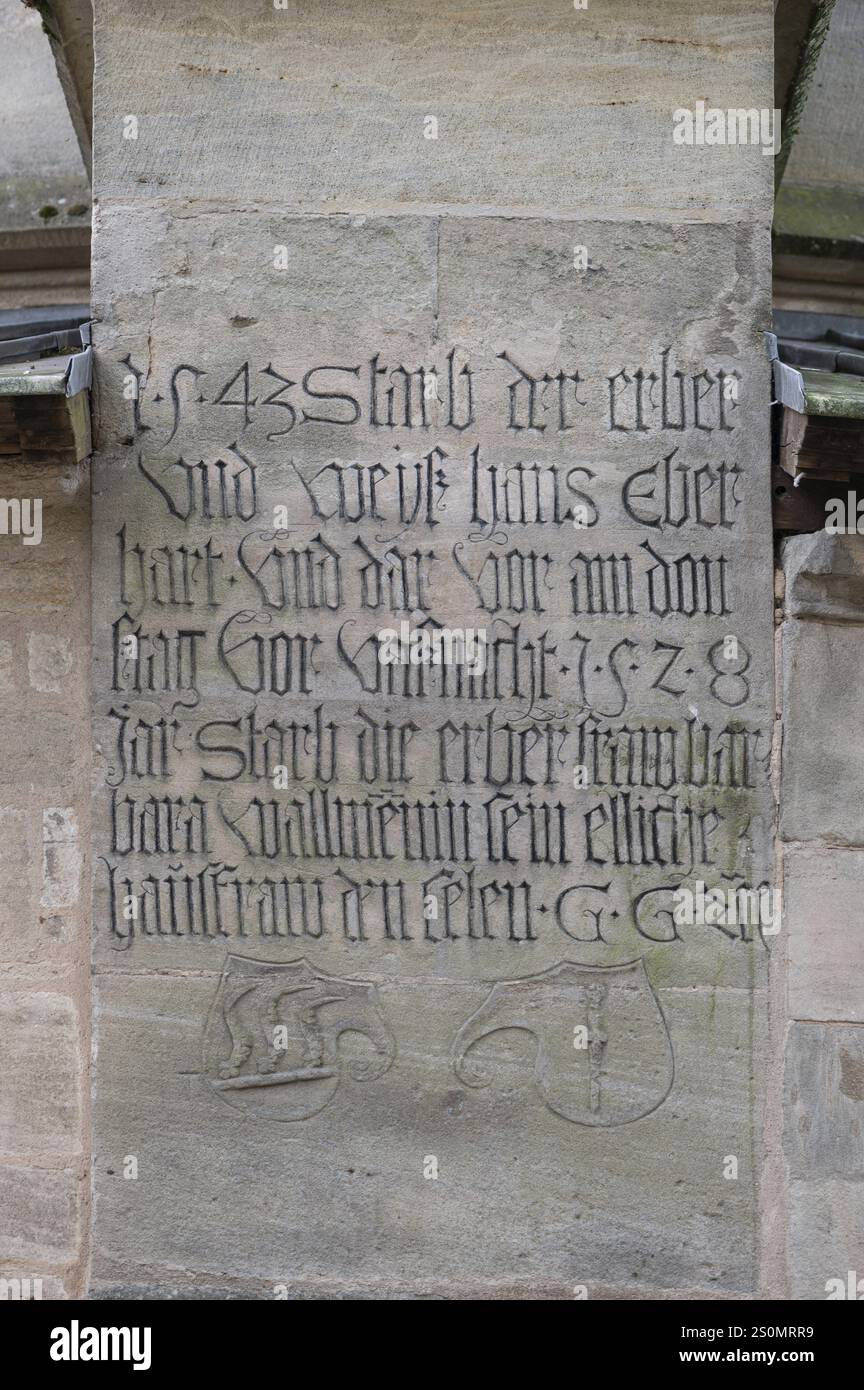 1·5·43 Starb der erber
Vnd weyß hans Eber
hart· Vnd dar vor am don
stag Vor Vasnacht·1·5·2·8
Jar Starb die erber fraw bar
bara Wallmēnin sein elliche
haüsfraw den selen·G·G·
alamy
Image ID: 2S0MRR9
www.alamy.com